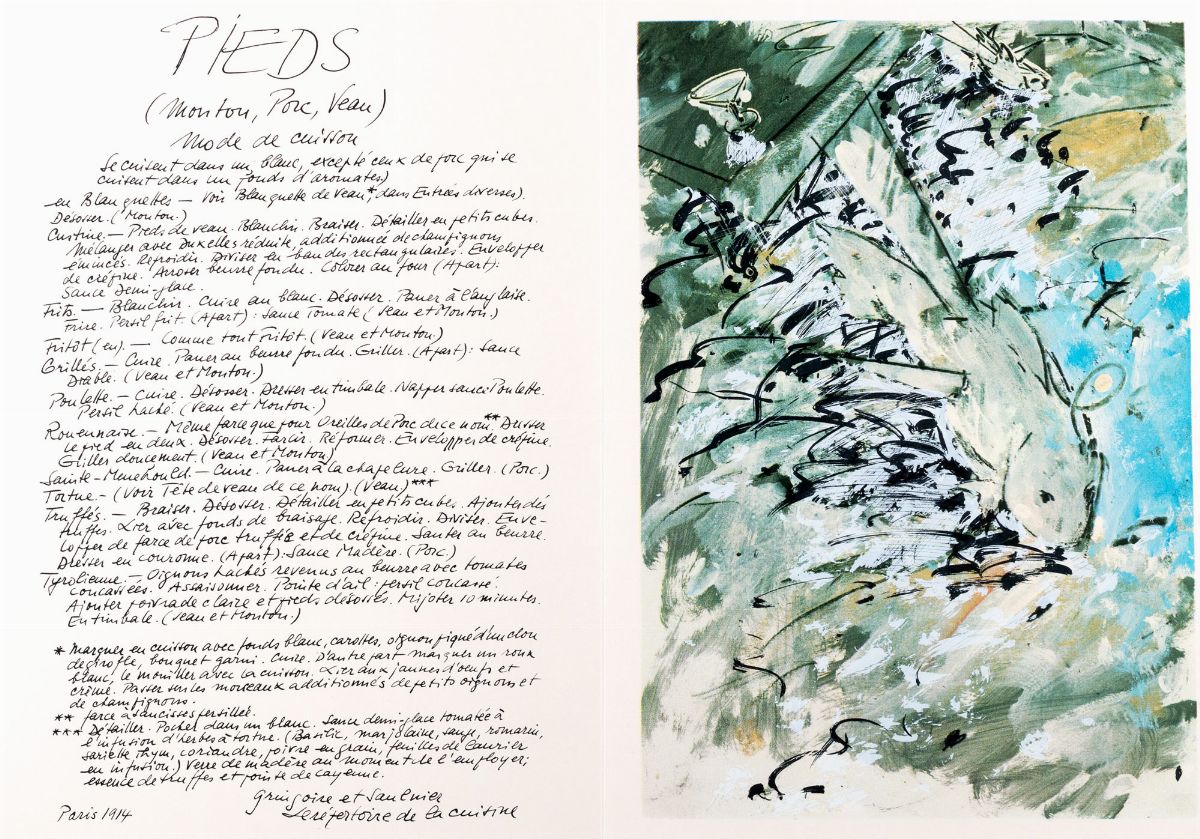 PIEDS
(Mouton, Porc, Veau)
Mode de cuisson
Se cuisent dans un blanc, excepté ceux de porc qui se
cuisent dans un fonds d'aromates)
en Blanquettes — Voir Blanquette de Veau*, dans Entrées diverses).
Désosser. (Mouton.)
Custine. — Pieds de veau. Blanchir. Braiser. Détailler en petits cubes.
Mélanger avec Duxelles réduite, additionnée de champignons
émincés. Refroidir. Diviser en bandes rectangulaires. Envelopper
de crépine. Arroser beurre fondu. Colorer au four (Apart):
Sauce Demi-glace.
Frits. — Blanchir. Cuire au blanc. Désosser. Paner à l'anglaise.
Frire. Persil frit. (Apart): Sauce Tomate (Veau et Mouton.)
Fritôt (en). — Comme tout Fritôt. (Veau et Mouton)
Grillés. — Cuire. Paner au beurre fondu. Griller. (Apart): Sauce
Diable. (Veau et Mouton.)
Poulette. — Cuire. Désosser. Dresser en timbale. Napper sauce Poulette.
Persil haché. (Veau et Mouton.)
Rouennaise. — Même farce que pour Oreilles de Porc de ce nom.**
le pied en deux. Désosser. Farcir. Reformer. Envelopper de crépine.
Griller doucement. (Veau et Mouton)
Sainte-Menehould. — Cuire. Paner à la chapelure. Griller. (Porc.)
Tortue. — (Voir Tête de veau de ce nom). (Veau.)***
Truffés. — Braiser. Désosser. Détailler en petits cubes. Ajouter dés
truffes. Lier avec fonds de braisage. Refroidir. Diviser. Enve-
lopper de farce de porc truffée et de crépine. Sauter au beurre.
Dresser en couronne. (Apart): Sauce Madère. (Porc.)
Tyrolienne. — Oignons hachés revenus au beurre avec tomates
concassées. Assaisonner. Pointe d'ail: persil concassé.
Ajouter poivrade claire et pieds désossés. Mijoter 10 minutes.
En timbale. (Veau et Mouton.)
* Marquer en cuisson avec fonds blanc, carottes, oignon piqué d'un clou
de girofle, bouquet garni. Cuire. D'autre part marquer un roux
blanc, le mouiller avec la cuisson. Lier aux jaunes d'oeufs et
crème. Passer sur les morceaux additionnés de petits oignons et
de champignons.
** farce à saucisses persillée.
*** Détailler. Pocher dans un blanc. Sauce demi-glace tomatée à
l'infusion d'herbes à tortue. (Basilic, marjolaine, sauge, romarin,
sariette, thym, coriandre, poivre en grain, feuilles de laurier
en infusion.) Verre de madère au moment de l'employer;
essence de truffes et pointe de cayenne.
Gringoire et Saulnier
Paris 1914 Le répertoire de la cuisine